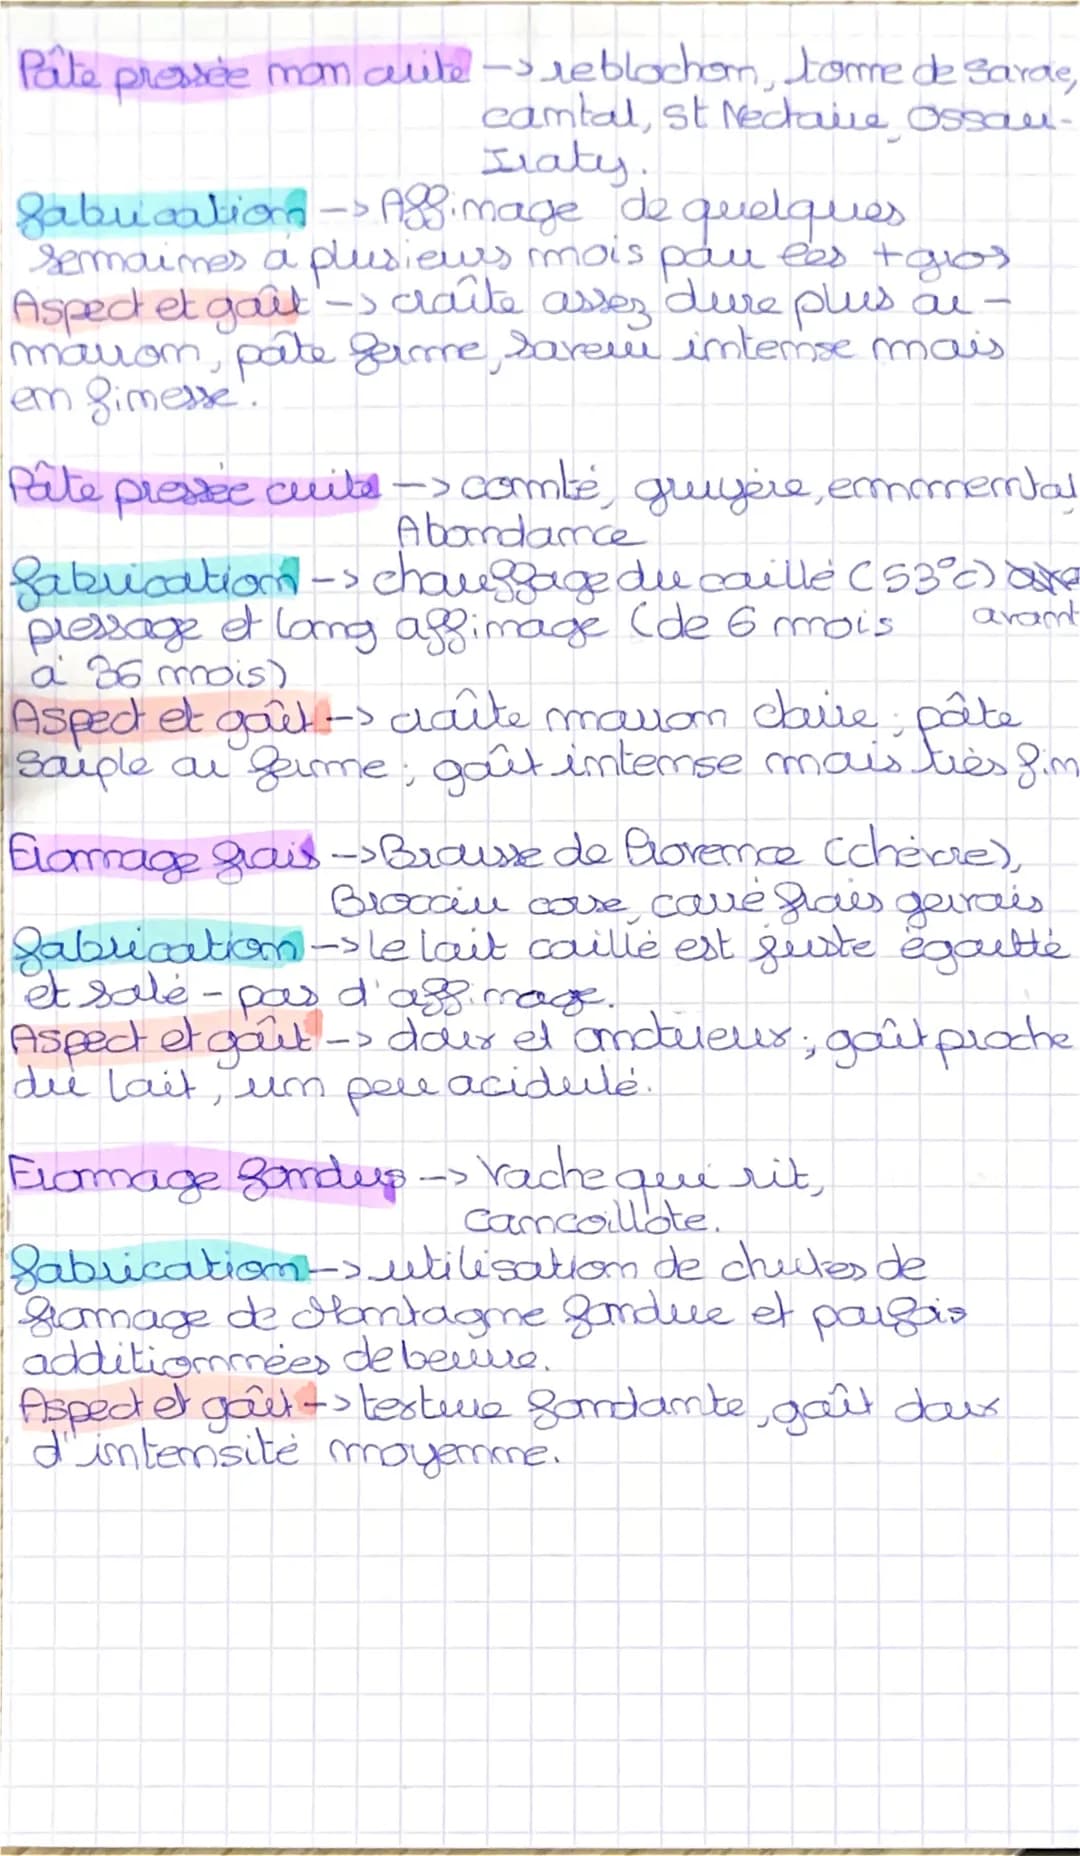 Pâte pressée non cuite -> reblochon, tome de Savoie,
cantal, St Nectaire, Ossau-
Iraty.
Fabrication -> Affinage de quelques
semaines à plusieurs mois pour les + gros
Aspect et goût -> croûte assez dure plus ou -
marron, pâte ferme, saveur intense mais
en finesse.
Pâte pressée cuite -> comté, gruyère, emmental
Abondance
Fabrication -> chauffage du caillé (53°c)
pressage et long affinage (de 6 mois avant
à 36 mois)
Aspect et goût -> croûte marron claire ; pâte
souple ou ferme ; goût intense mais très fin
Fromage frais -> Brousse de Provence (chèvre),
Brocciu corse, carré frais gervais
Fabrication -> le lait caillé est juste égoutté
et salé - pas d'affinage.
Aspect et goût -> doux et onctueux ; goût proche
du lait, un peu acidulé.
Fromage fondus -> Vache qui rit,
cancoillote.
Fabrication -> utilisation de chutes de
fromage de Montagne fondue et parfois
additionnées de beurre.
Aspect et goût -> texture fondante, goût doux
d'intensité moyenne.